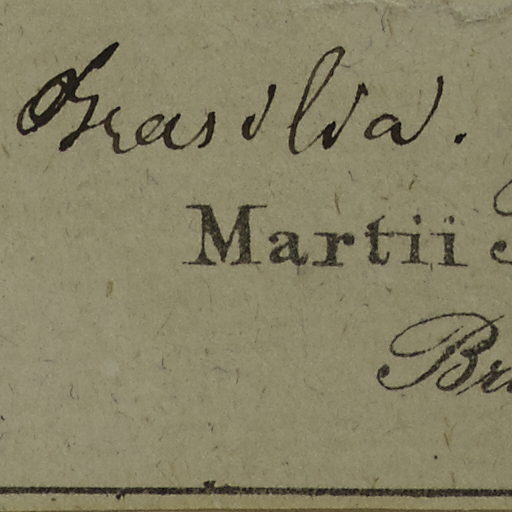 Brasilia.
Martii
Br